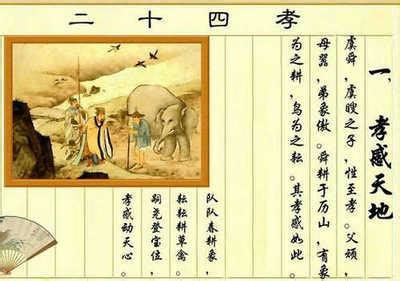 二十四孝
一、孝感天地
虞舜,虞瞍之子,性至孝。父顽,
母嚚,弟象傲。舜耕于历山,有象
为之耕,鸟为之耘。其孝感如此。
队队春耕象,
耘耘耕草禽。
嗣尧登宝位,
孝感动天心。